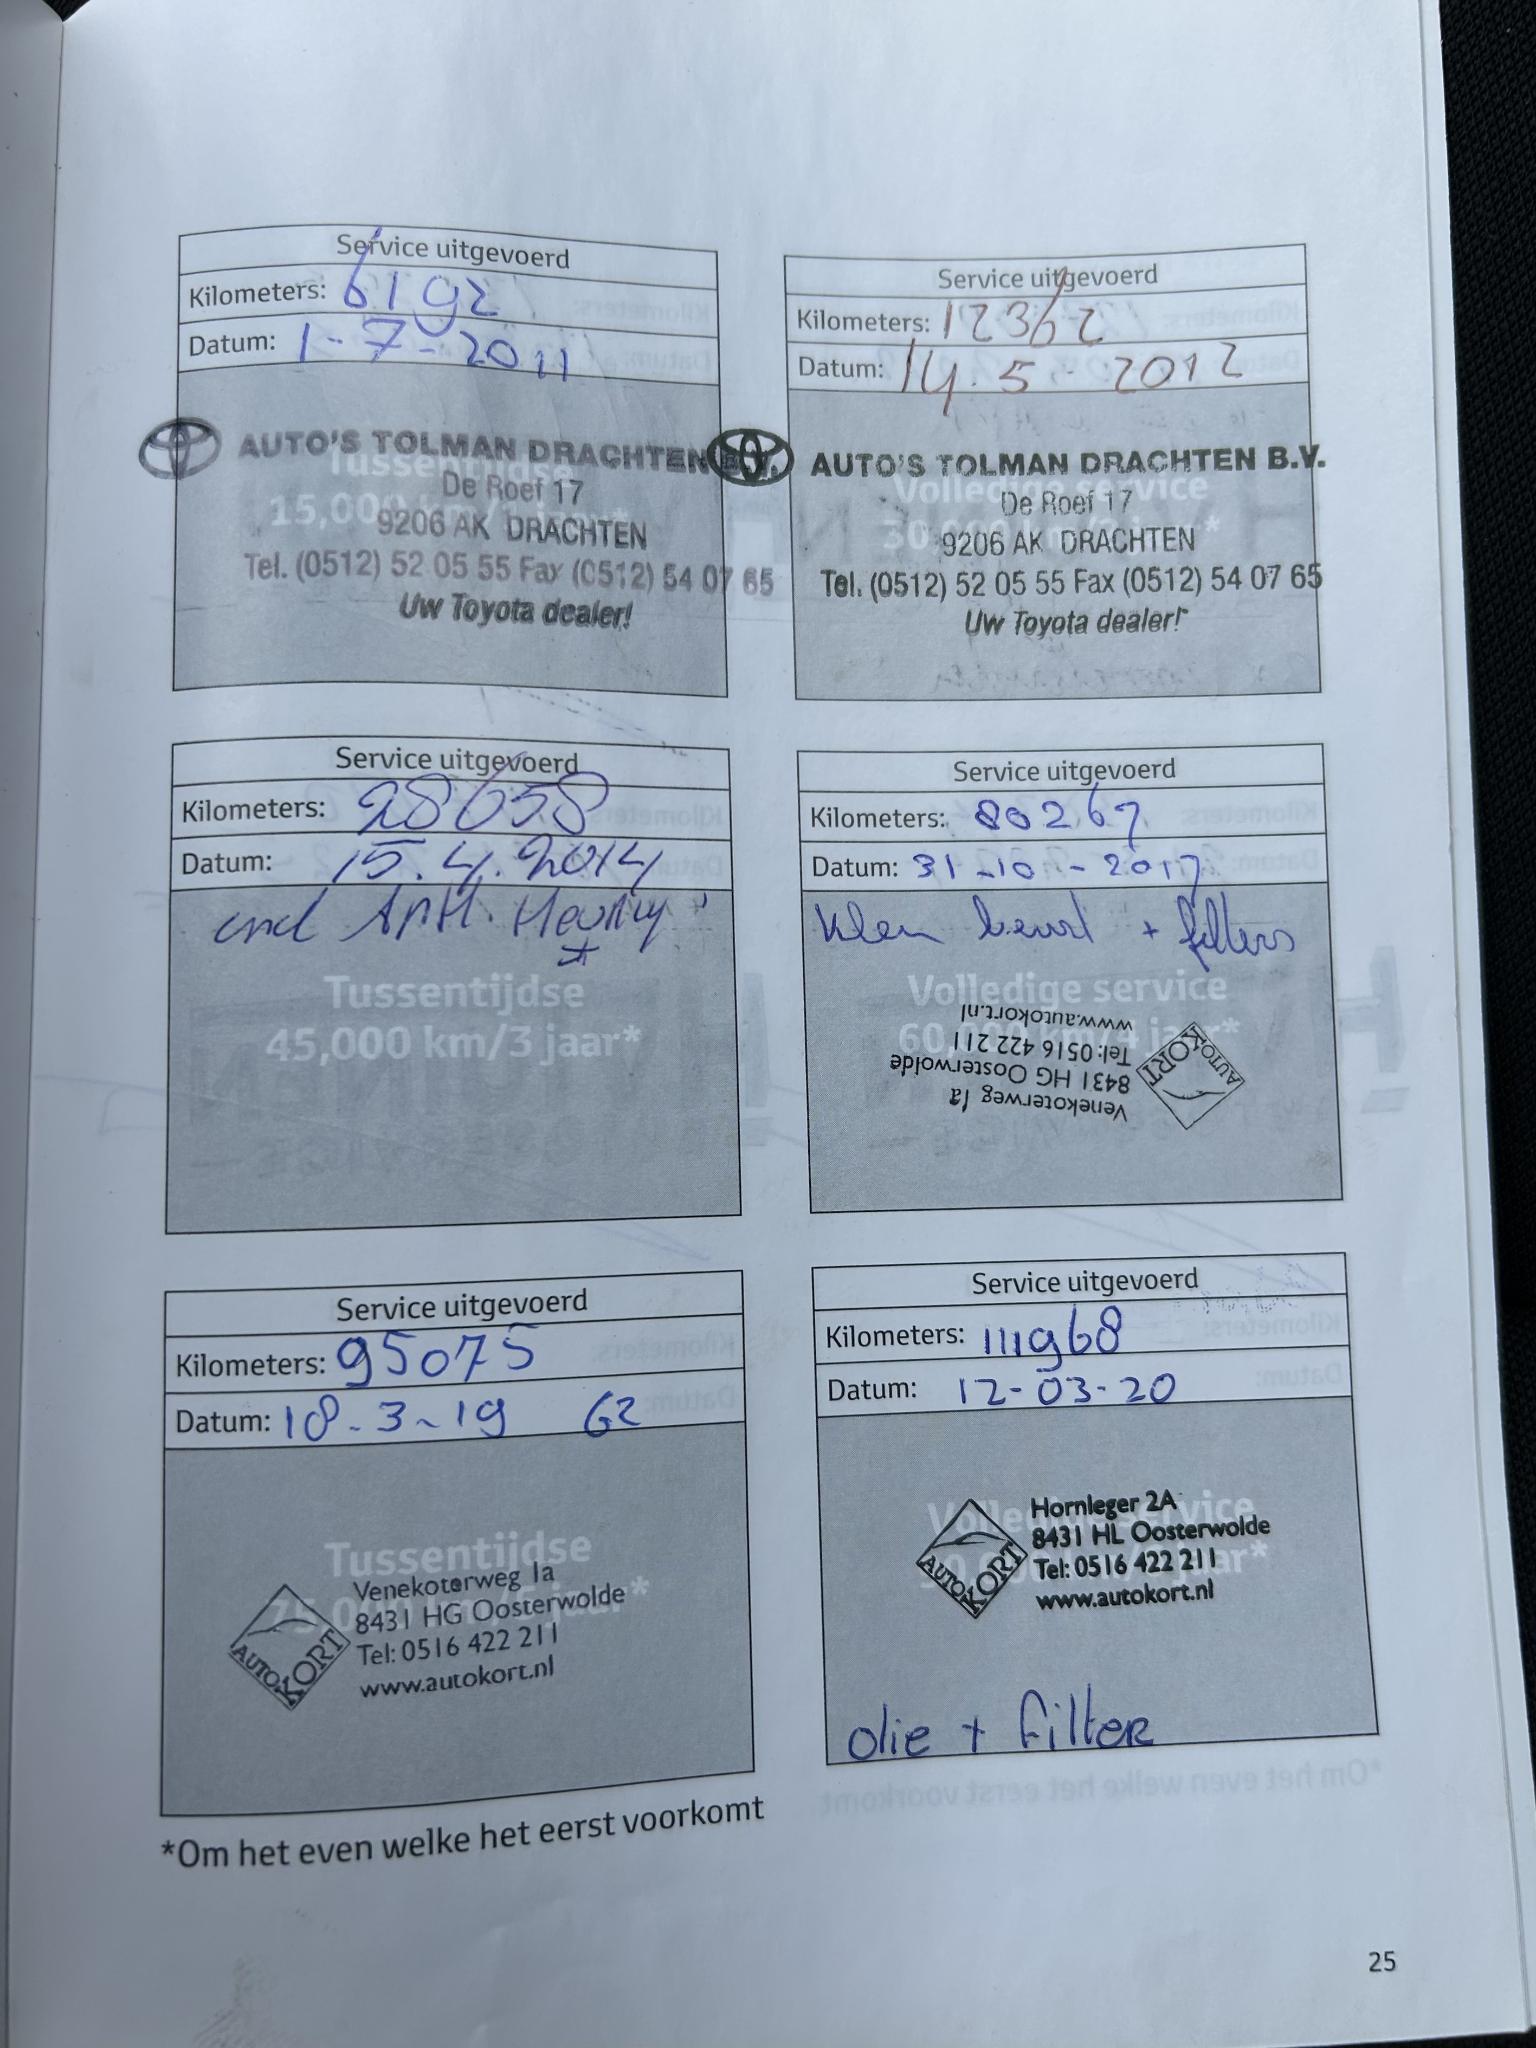 Service uitgevoerd
Kilometers: 6192
Datum: 1-7-2011
AUTO'S TOLMAN DRACHTEN B.V.
Tussentijdse
De Roef 17
15,000 km/1 jaar*
9206 AK DRACHTEN
Tel. (0512) 52 05 55 Fax (0512) 54 07 65
Uw Toyota dealer!
Service uitgevoerd
Kilometers: 12362
Datum: 14.5-2012
AUTO'S TOLMAN DRACHTEN B.V.
Volledige service
De Roef 17
30,000 km/2 jaar*
9206 AK DRACHTEN
Tel. (0512) 52 05 55 Fax (0512) 54 07 65
Uw Toyota dealer!
Service uitgevoerd
Kilometers: 28658
Datum: 15.4.2014
Tussentijdse
45,000 km/3 jaar*
Service uitgevoerd
Kilometers: 80267
Datum: 31-10-2017
klein beurt + filters
Volledige service
60,000 km/4 jaar*
AUTO KORT
Venekoterweg 1a
8431 HG Oosterwolde
Tel: 0516 422 211
www.autokort.nl
Service uitgevoerd
Kilometers: 95075
Datum: 18-3-19 62
Tussentijdse
75,000 km/5 jaar*
AUTO KORT
Venekoterweg 1a
8431 HG Oosterwolde
Tel: 0516 422 211
www.autokort.nl
Service uitgevoerd
Kilometers: 111968
Datum: 12-03-20
Volledige service
90,000 km/6 jaar*
AUTO KORT
Hornleger 2A
8431 HL Oosterwolde
Tel: 0516 422 211
www.autokort.nl
olie + filter
*Om het even welke het eerst voorkomt
25